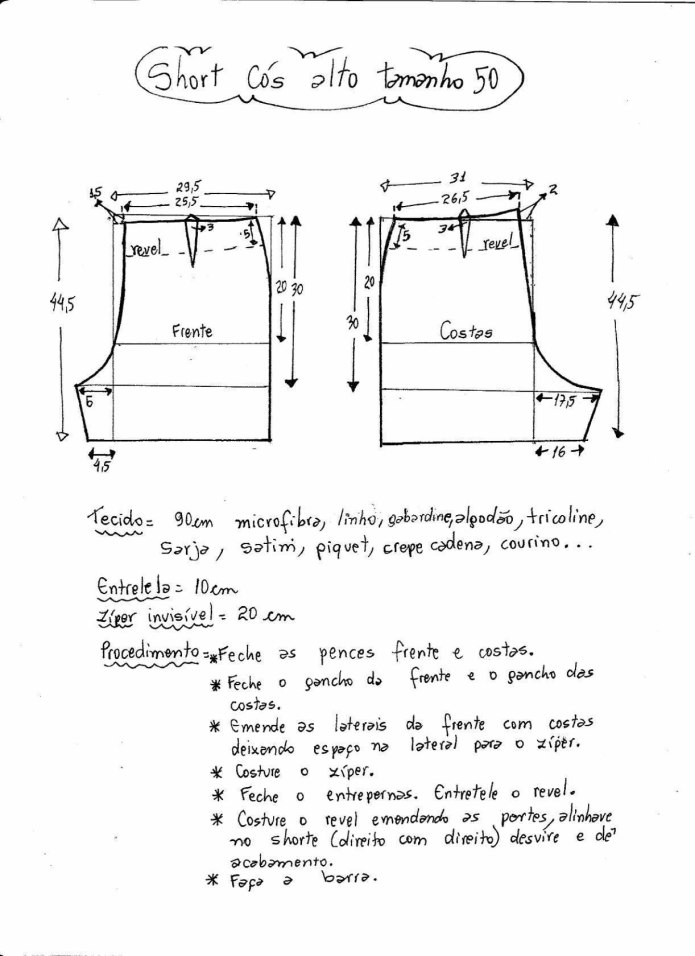 Short Cós alto tamanho 50
29,5
25,5
1,5
3
5
revel
20
30
44,5
Frente
6
4,5
31
26,5
2
3
5
revel
20
30
44,5
Costas
17,5
16
Tecido = 90cm microfibra, linho, gabardine, algodão, tricoline,
sarja, setim, piquet, crepe cadena, courino...
Entretela = 10cm
Zíper invisível = 20 cm
Procedimento = * Feche as pences frente e costas.
* Feche o gancho da frente e o gancho das
costas.
* Emende as laterais da frente com costas
deixando espaço na lateral para o zíper.
* Costure o zíper.
* Feche o entrepernas. Entretele o revel.
* Costure o revel emendando as partes, alinhave
no shorte (direito com direito) desvire e dê
acabamento.
* Faça a barra.